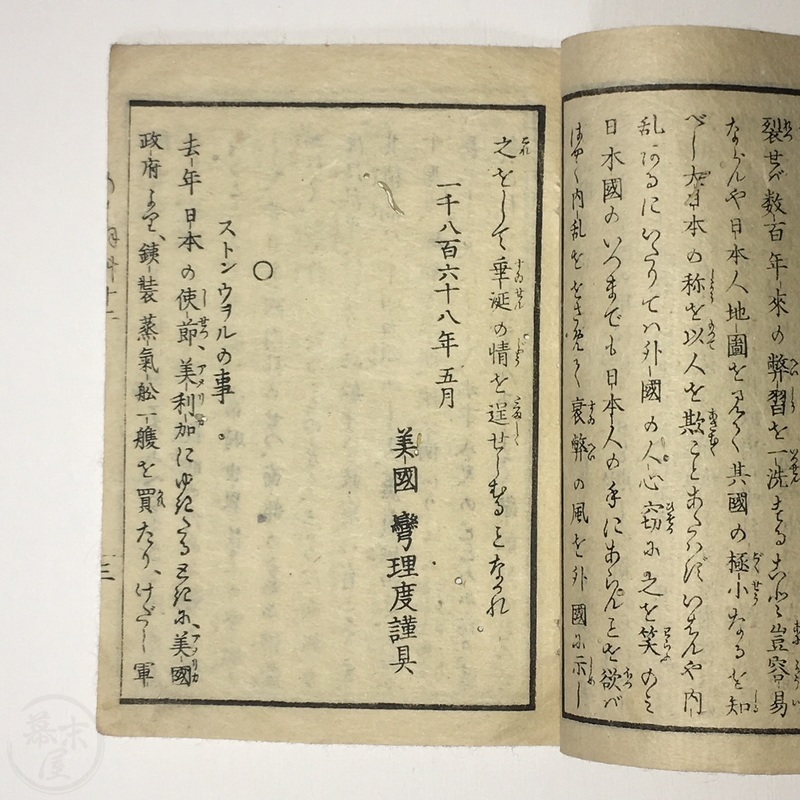 裂せバ数百年來の弊習を一洗する豈容易
ならんや日本人地圖を見て其國の極小なるを知
べし大日本の称を以人を欺ことあたハずいはんや内
乱あるにいたりてハ外國の人心窃に之を笑のミ
日本國のいつまでも日本人の手にあらんことを欲バ
はやく内乱ををさめて衰弊の風を外國に示し
之をして垂涎の情を逞せしむることなかれ
一千八百六十八年五月
美國 彎理度謹具
〇
ストンウヲルの事。
去年日本の使節、美利加にゆきたるときに美國
政府より、銕装蒸氣舩一艘を買たり、けだし軍
三
幕末屋